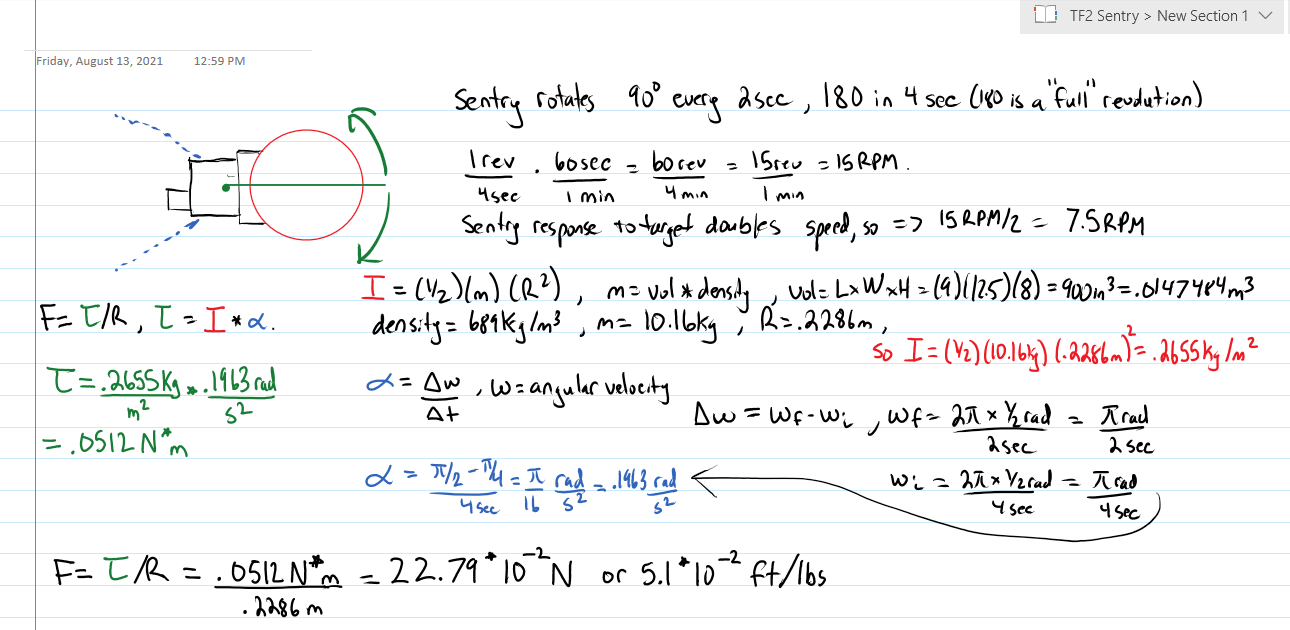 TF2 Sentry > New Section 1
Friday, August 13, 2021 12:59 PM
Sentry rotates 90° every 2sec, 180 in 4 sec (180 is a "full" revolution)
1rev/4sec · 60sec/1min = 60rev/4min = 15rev/1min = 15RPM.
Sentry response to target doubles speed, so => 15RPM/2 = 7.5RPM
I = (1/2)(m)(R²), m= vol*density, vol= LxWxH = (9)(12.5)(8) = 900in³ = .0147484m³
F= τ/R, τ = I*α.
density= 689Kg/m³, m= 10.16kg, R=.2286m,
so I = (1/2)(10.16kg)(.2286m)² = .2655kg/m²
τ = .2655Kg/m² * .1963rad/s²
= .0512 N*m
α = Δw/Δt, w= angular velocity
Δw = wf - wi, wf= 2π x 1/2 rad/2sec = π rad/2sec
α = π/2 - π/4/4sec = π/16 rad/s² = .1963 rad/s²
wi = 2π x 1/2 rad/4sec = π rad/4sec
F= τ/R = .0512 N*m/.2286m = 22.79*10⁻²N or 5.1*10⁻² ft/lbs